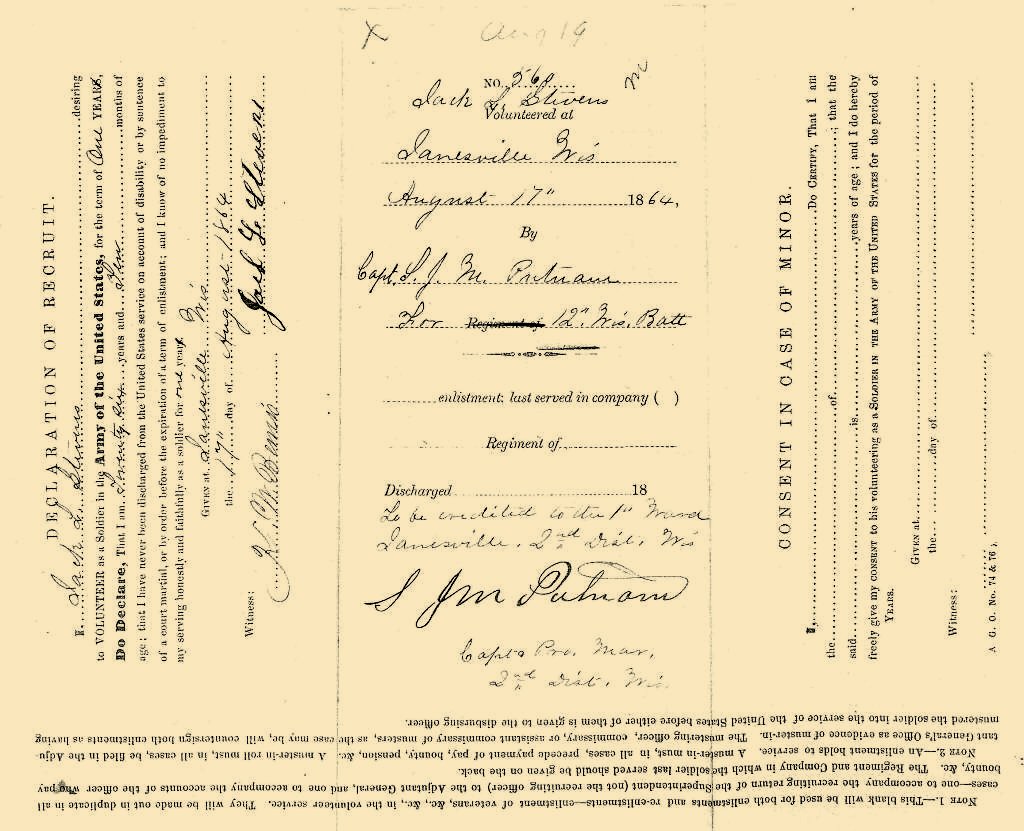 DECLARATION OF RECRUIT.
I, Jack L. Stevens desiring
to VOLUNTEER as a Soldier in the Army of the United States, for the term of One YEARS,
Do Declare, That I am Twenty six years and Ten months of
age; that I have never been discharged from the United States service on account of disability or by sentence
of a court martial, or by order before the expiration of a term of enlistment; and I know of no impediment to
my serving honestly and faithfully as a soldier for one years.
GIVEN at Janesville Wis
the 17" day of August 1864
Jack L. Stevens
Witness:
X Aug 19
NO. 560
Jack L. Stevens
Volunteered at
Janesville Wis
August 17" 1864,
By
Capt. S. J. M. Putnam
For Regiment of 12" Wis. Batt
enlistment; last served in company ( )
Regiment of
Discharged 18
To be credited to the 1" Ward
Janesville. 2nd Dist. Wis
S J M Putnam
Capt & Pro. Mar.
2nd Dist. Wis.
CONSENT IN CASE OF MINOR.
I, Do CERTIFY, That I am
the of ; that the
said is years of age; and I do hereby
freely give my CONSENT to his volunteering as a SOLDIER IN THE ARMY OF THE UNITED STATES for the period of
YEARS.
GIVEN at
the day of
Witness:
A G. O. No. 74 & 76
NOTE 1.—This blank will be used for both enlistments and re-enlistments—enlistment of veterans, &c., &c., in the volunteer service. They will be made out in duplicate in all
cases—one to accompany the recruiting return of the Superintendent (not the recruiting officer) to the Adjutant General, and one to accompany the accounts of the officer who pay
bounty, &c. The Regiment and Company in which the soldier last served should be given on the back.
NOTE 2.—An enlistment holds to service. A muster-in must, in all cases, precede payment of pay, bounty, pension, &c. A muster-in roll must, in all cases, be filed in the Adju-
tant General's Office as evidence of muster-in. The mustering officer, commissary, or assistant commissary of musters, as the case may be, will countersign both enlistments as having
mustered the soldier into the service of the United States before either of them is given to the disbursing officer.